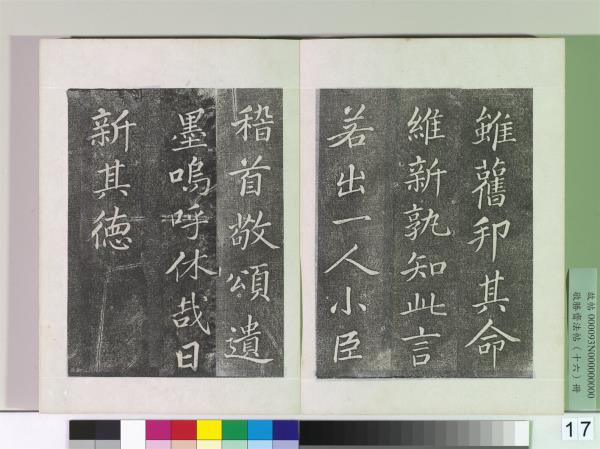 雖舊邦其命
維新孰知此言
若出一人小臣
稽首敬頌遺
墨嗚呼休哉日
新其德
故帖 000093N000000000
敬勝齋法帖(十六) 冊
17